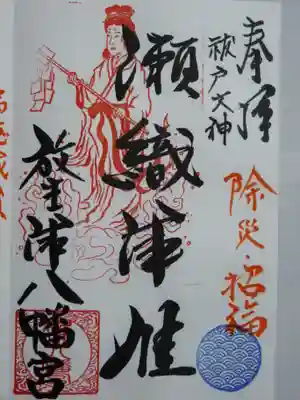 奉拝
祓戸大神
除災・招福
瀬織津姫
放生津八幡宮